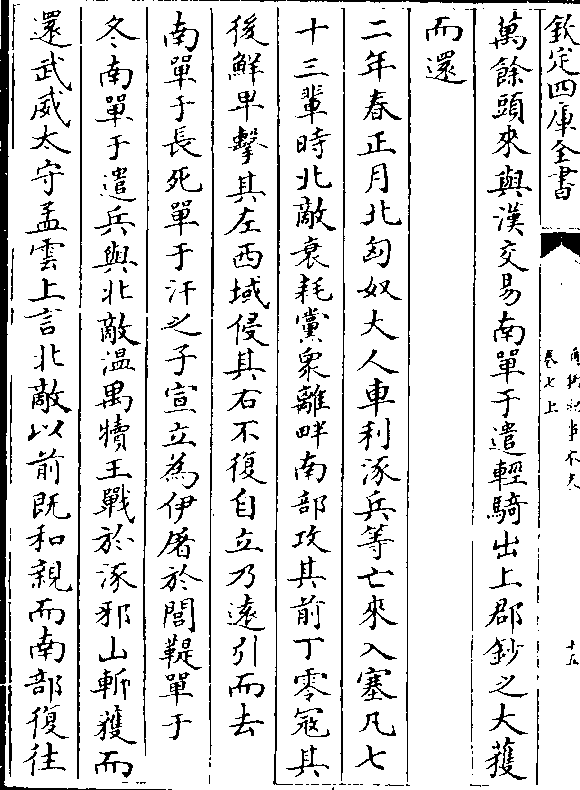 欽定四庫全書
卷七上
十五
萬餘頭來與漢交易南單于遣輕騎出上郡鈔之大獲
而還
二年春正月北匈奴大人車利涿兵等亡來入塞凡七
十三輩時北敵衰耗黨衆離畔南部攻其前丁零寇其
後鮮卑擊其左西域侵其右不復自立乃遠引而去
南單于長死單于汗之子宣立為伊屠於閭鞮單于
冬南單于遣兵與北敵温禺犢王戰於涿邪山斬獲而
還武威太守孟雲上言北敵以前既和親而南部復往